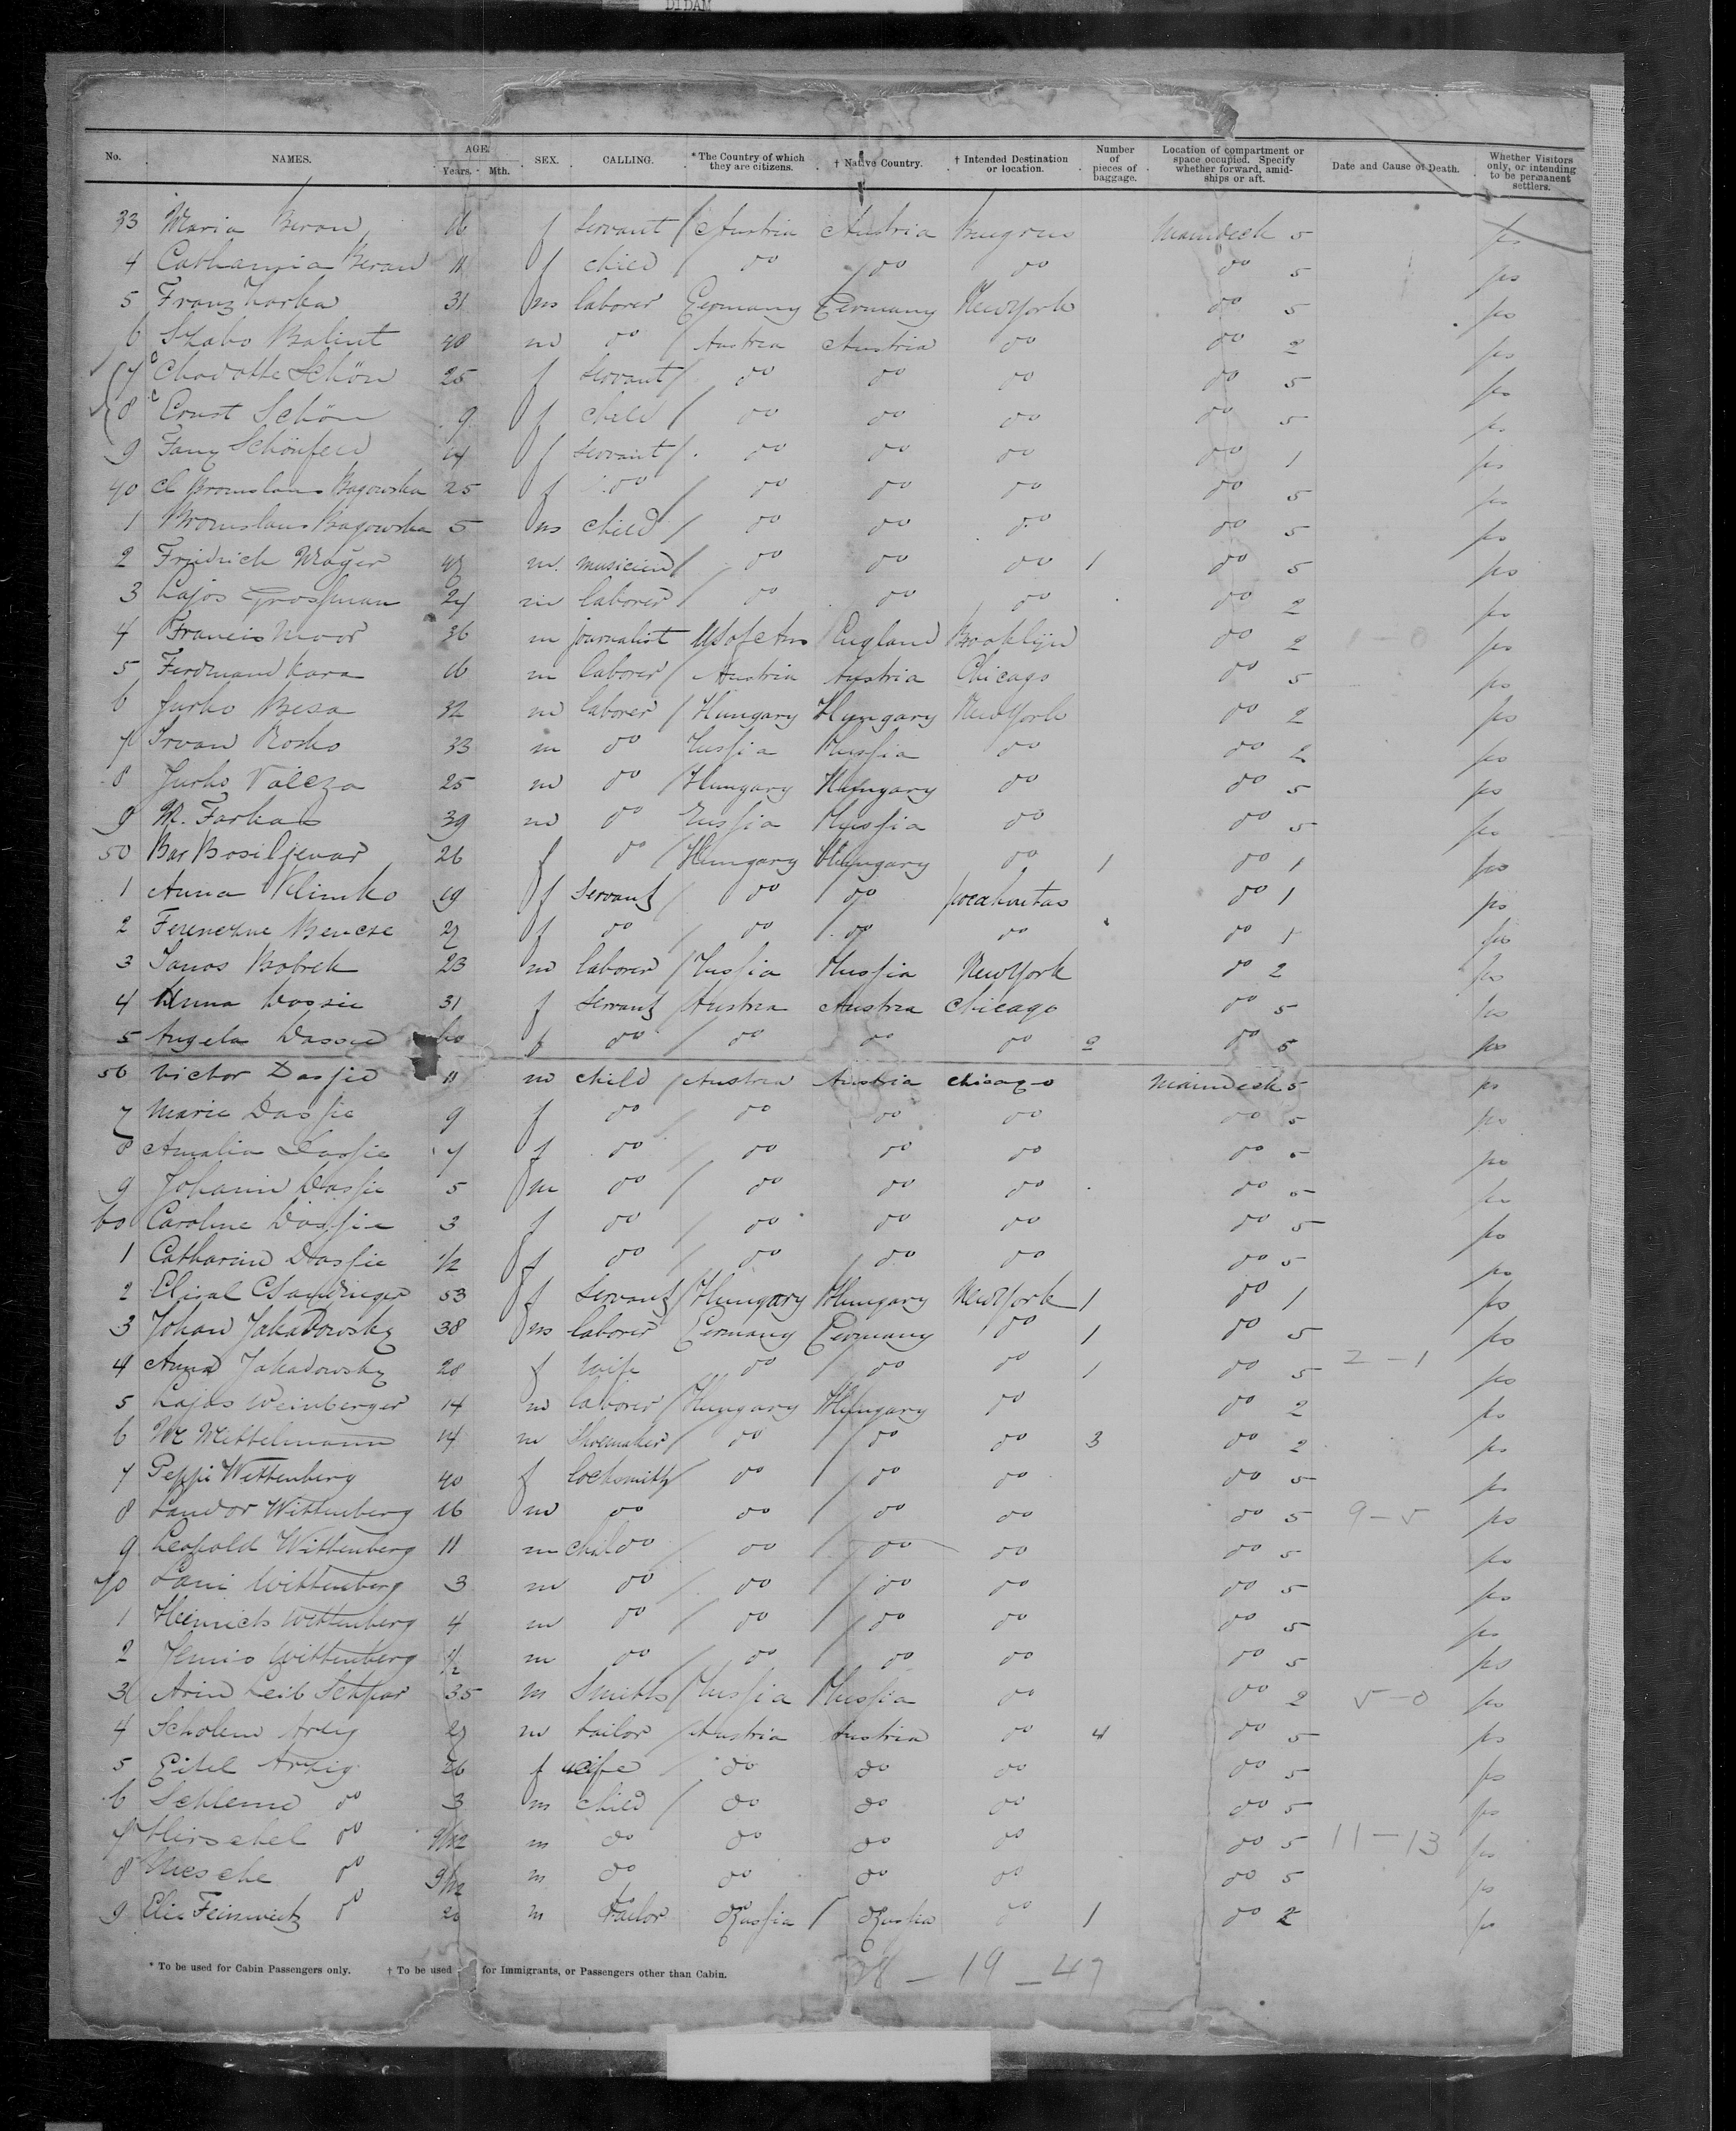 DIDAM
No. NAMES. AGE. Years. - Mth. SEX. CALLING. * The Country of which they are citizens. † Native Country. † Intended Destination or location. Number of pieces of baggage. Location of compartment or space occupied. Specify whether forward, amidships or aft. Date and Cause of Death. Whether Visitors only, or intending to be permanent settlers.
33 Maria Beran 16 f servant / Austria Austria Maindeck 5 ps
4 Beran 11 f child / do / do do do 5 ps
5 Franz 31 m laborer Germany Germany New York do 5 ps
6 Szabo Balint 40 m do / Austria Austria do do 2 ps
7 Charlotte Schön 25 f servant / do do do do 5 ps
8 Ernst Schön 9 f child / do do do do 5 ps
9 Fany Schönfeld 14 f servant / do do do do 1 ps
40 Bagowska 25 f do / do do do do 5 ps
1 Bromslaus Bagowska 5 m child / do do do do 5 ps
2 Fridrich Mayer m musician / do do do 1 do 5 ps
3 Lajos Grossman 24 m laborer / do do do do 2 ps
4 Francis Moor 36 m journalist US of Am England Brooklyn do 2 ps
5 Ferdinand Kara 16 m laborer / Austria Austria Chicago do 5 ps
6 Jurko Besa 32 m laborer / Hungary Hungary New York do 2 ps
7 Ivan Bosko 33 m do Russia Russia do do 2 ps
8 Jurko 25 m do / Hungary Hungary do do 5 ps
9 M. Farkas 39 m do Russia Russia do do 5 ps
50 Bar Bosiljevar 26 f do / Hungary Hungary do 1 do 1 ps
1 Anna Klimko 19 f servant / do do Pocahontas do 1 ps
2 Bencze 27 f do / do do do do 1 ps
3 Janos Bobrek 23 m laborer / Russia Russia New York do 2 ps
4 Anna Dassie 31 f servant Austria Austria Chicago do 5 ps
5 Angela Dassie 60 f do / do do do 2 do 5 ps
56 Victor Dassie 11 m child / Austria Austria Chicago Maindeck 5 ps
7 Marie Dassie 9 f do / do do do do 5 ps
8 Amalia Dassie 7 f do / do do do do 5 ps
9 Johann Dassie 5 m do / do do do do 5 ps
60 Caroline Dassie 3 f do / do do do do 5 ps
1 Catharin Dassie 1/2 f do / do / do do do 5 ps
2 53 f servant / Hungary Hungary New York 1 do 1 ps
3 Johan Jakadowsky 38 m laborer Germany Germany do 1 do 5 ps
4 Anna Jakadowsky 28 f wife do / do do 1 do 5 2 - 1 ps
5 Lajos Weinberger 14 m laborer / Hungary Hungary do do 2 ps
6 M Mettelmann 14 m Shoemaker / do / do do 3 do 2 ps
7 Peppi Wittenberg 40 f locksmith / do / do do do 5 ps
8 Sandor Wittenberg 16 m do do / do do do 5 9 - 5 ps
9 Leopold Wittenberg 11 m child do / do / do do do 5 ps
70 Wittenberg 3 m do / do / do do do 5 ps
1 Heinrich Wittenberg 4 m do / do / do do do 5 ps
2 Wittenberg 1/2 m do / do / do do do 5 ps
3 Leib 35 m Smith / Russia Russia do do 2 5 - 0 ps
4 Scholem Arzig 27 m tailor / Austria Austria do 4 do 5 ps
5 Eitel Arzig 26 f wife do do do do 5 ps
6 Schleme do 3 m child / do do do do 5 ps
7 Hirschel do m do do do do do 5 11 - 13 ps
8 do 9/12 m do do do do do 5 ps
9 do 20 m tailor Russia / Russia do 1 do 2 ps
* To be used for Cabin Passengers only. † To be used for Immigrants, or Passengers other than Cabin.
28 - 19 - 47